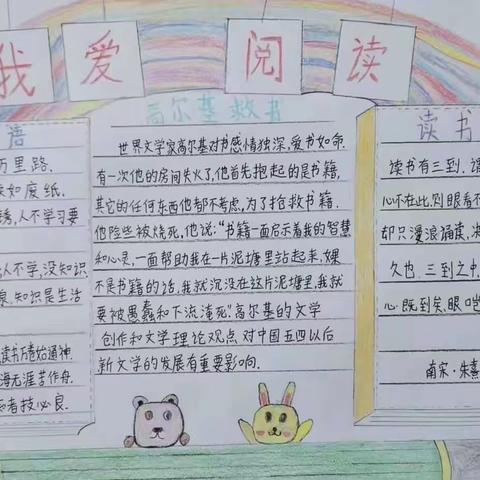 我爱阅读
语
万里路.
如废纸.
人不学习要
人不学,没知识
泉,知识是生活
读书万卷始通神.
海无涯苦作舟.
者技必良.
高尔基救书
世界文学家高尔基对书感情独深,爱书如命.
有一次他的房间失火了,他首先抱起的是书籍,
其它的任何东西他都不考虑,为了抢救书籍.
他险些被烧死,他说:“书籍一面启示着我的智慧
和心灵,一面帮助我在一片泥塘里站起来,如果
不是书籍的话,我就沉没在这片泥塘里,我就
要被愚蠢和下流淹死”高尔基的文学
创作和文学理论观点对中国五四以后
新文学的发展有重要影响.
读书
读书有三到,谓
心不在此,则眼看不
却只漫浪诵读,决
久也.三到之中,
心既到矣,眼口岂
南宋·朱熹